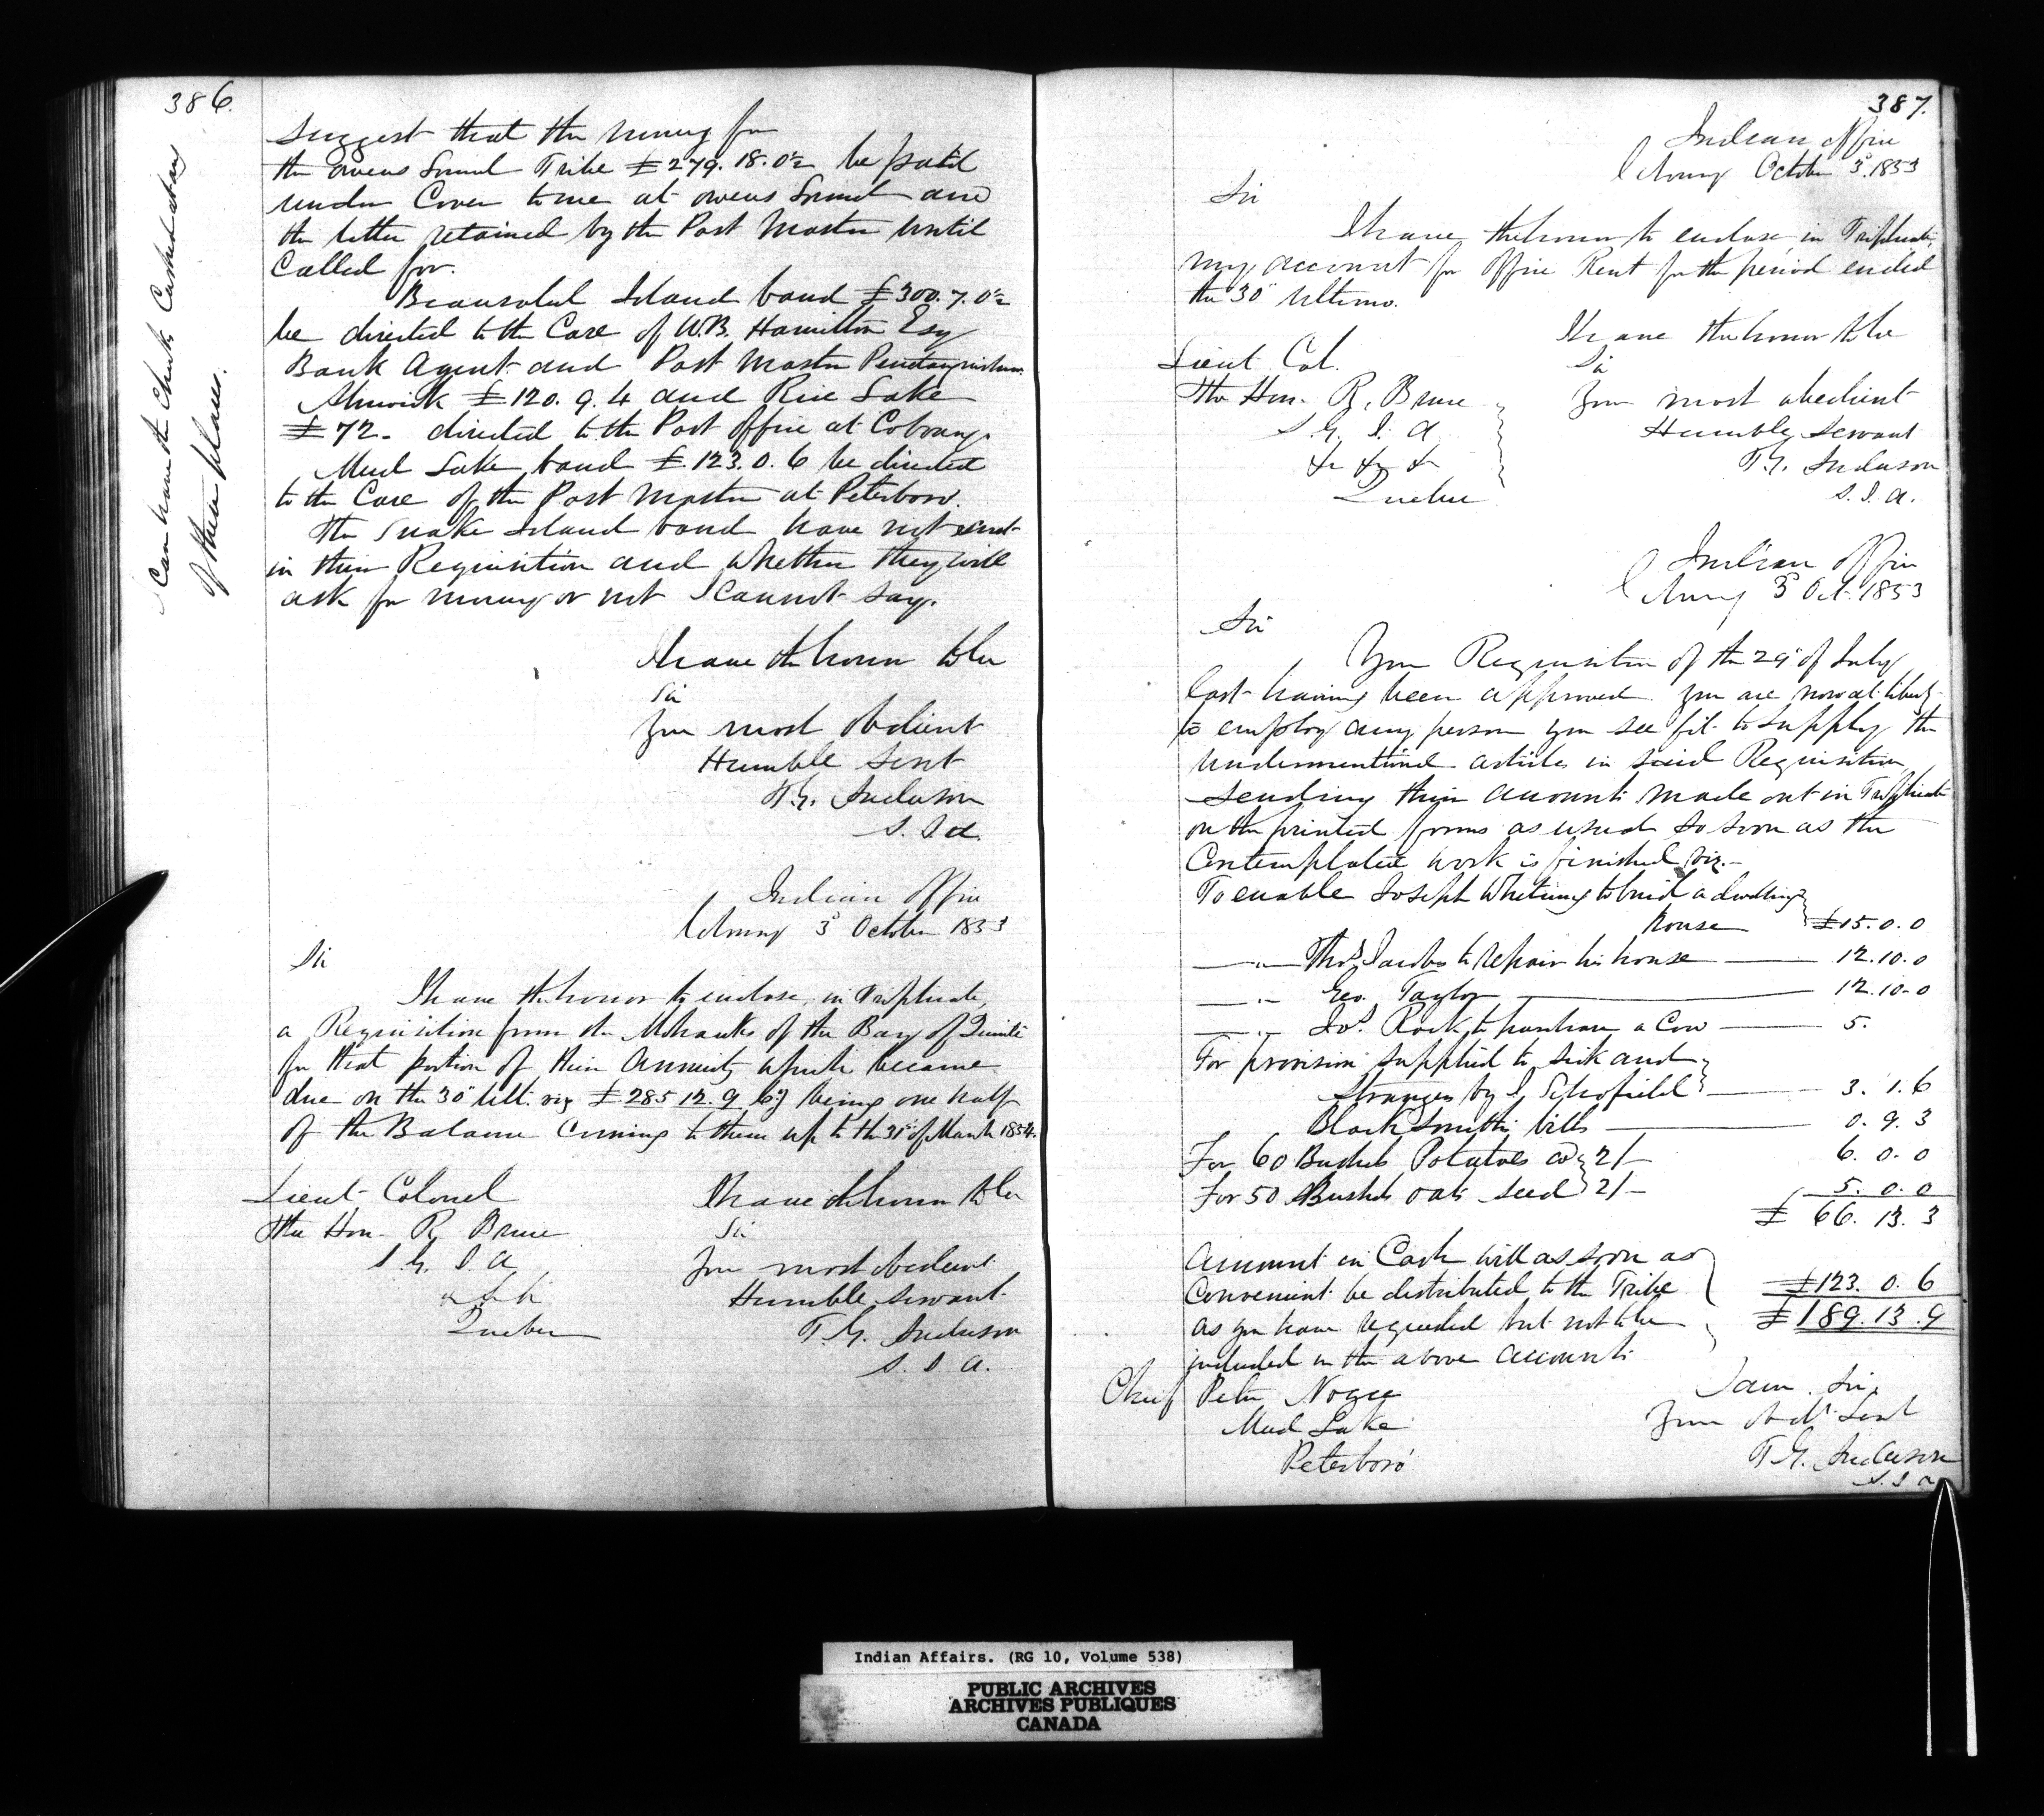 386.
Can have the Checks Cashed at any
of their places.
suggest that the money for
the Owens Sound Tribe £279.18.0½ be paid
under Cover to me at Owens Sound and
the letter retained by the Post Master until
Called for.
Beausoleil Island band £300.7.0½
be directed to the Care of W.B. Hamilton Esq
Bank Agent and Post Master Penetanguishene
Alnwick £120.9.4 and Rice Lake
£72. directed to the Post Office at Cobourg.
Mud Lake band £123.0.6 be directed
to the Care of the Post Master at Peterboro.
The Snake Island band have not sent
in their Requisition and whether they will
ask for money or not I cannot say.
I have the honor to be
Sir
Your most obedient
Humble Servt
T.G. Anderson
S.I.A.
Indian Office
Cobourg 3d October 1853
Sir
I have the honor to enclose, in Triplicate,
a Requisition from the Mohawks of the Bay of Quinté
for that portion of their Annuity which became
due on the 30th Ult. viz £285.12.9 being one half
of the Balance Coming to them up to the 31st of March 1854.
Lieut Colonel
The Hon. R. Bruce
S.G.I.A
Quebec
I have the honor to be
Sir
Your most obedient
Humble Servant
T.G. Anderson
S.I.A.
387.
Indian Office
Cobourg October 3d 1853
Sir
I have the honor to enclose in Triplicate,
my account for Office Rent for the period ended
the 30th Ultimo.
I have the honor to be
Lieut Col.
Sir
The Hon. R. Bruce
Your most obedient
S.G.I.A
Humble Servant
&c &c &c
T.G. Anderson
Quebec
S.I.A.
Indian Office
Cobourg 3d Oct. 1853
Sir
Your Requisition of the 29th of July
last having been approved you are now at liberty
to employ any person you see fit to supply the
undermentioned articles in said Requisition
sending their accounts made out in Triplicate
on the printed forms as usual so soon as the
Contemplated work is finished viz.-
To enable Joseph Whetung to build a dwelling
house £15.0.0
—"— Thos Jacobs to repair his house — 12.10.0
—"— Geo. Taylor — 12.10.0
—"— Jos. Rock to purchase a Cow — 5.
For provision supplied to sick and
Strangers by J. Schofield — 3.1.6
Black Smiths bills — 0.9.3
For 60 Bushels Potatoes 2/- 6.0.0
For 50 Bushels oats seed 2/- 5.0.0
£66.13.3
Amount in Cash will as soon as
Convenient be distributed to the Tribe £123.0.6
as you have requested but not to be £189.13.9
included in the above accounts
Chief Peter Nogee
Mud Lake
Peterboro'
I am Sir,
Your Obdt Servt
T.G. Anderson
S.I.A
Indian Affairs. (RG 10, Volume 538)
PUBLIC ARCHIVES
ARCHIVES PUBLIQUES
CANADA